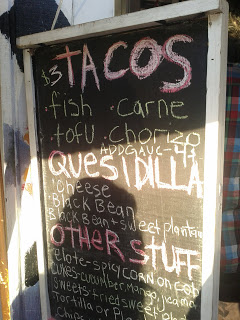 $3 TACOS
·fish ·carne
·tofu ·chorizo
ADD GAUC-
QUESIDILLA
·cheese
·Black Bean
Black Bean + sweet plantin
OTHER STUFF
elote-spicy corn on cob
cucumber, mango,
sweets-fried sweet
Tortilla or
Chips